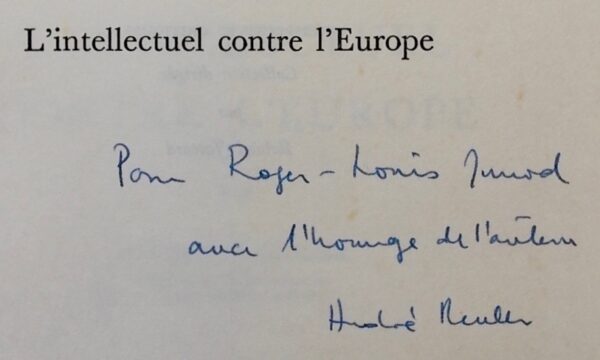 L'intellectuel contre l'Europe
Pour Roger-Louis Junod
avec l'hommage de l'auteur
André Reszler